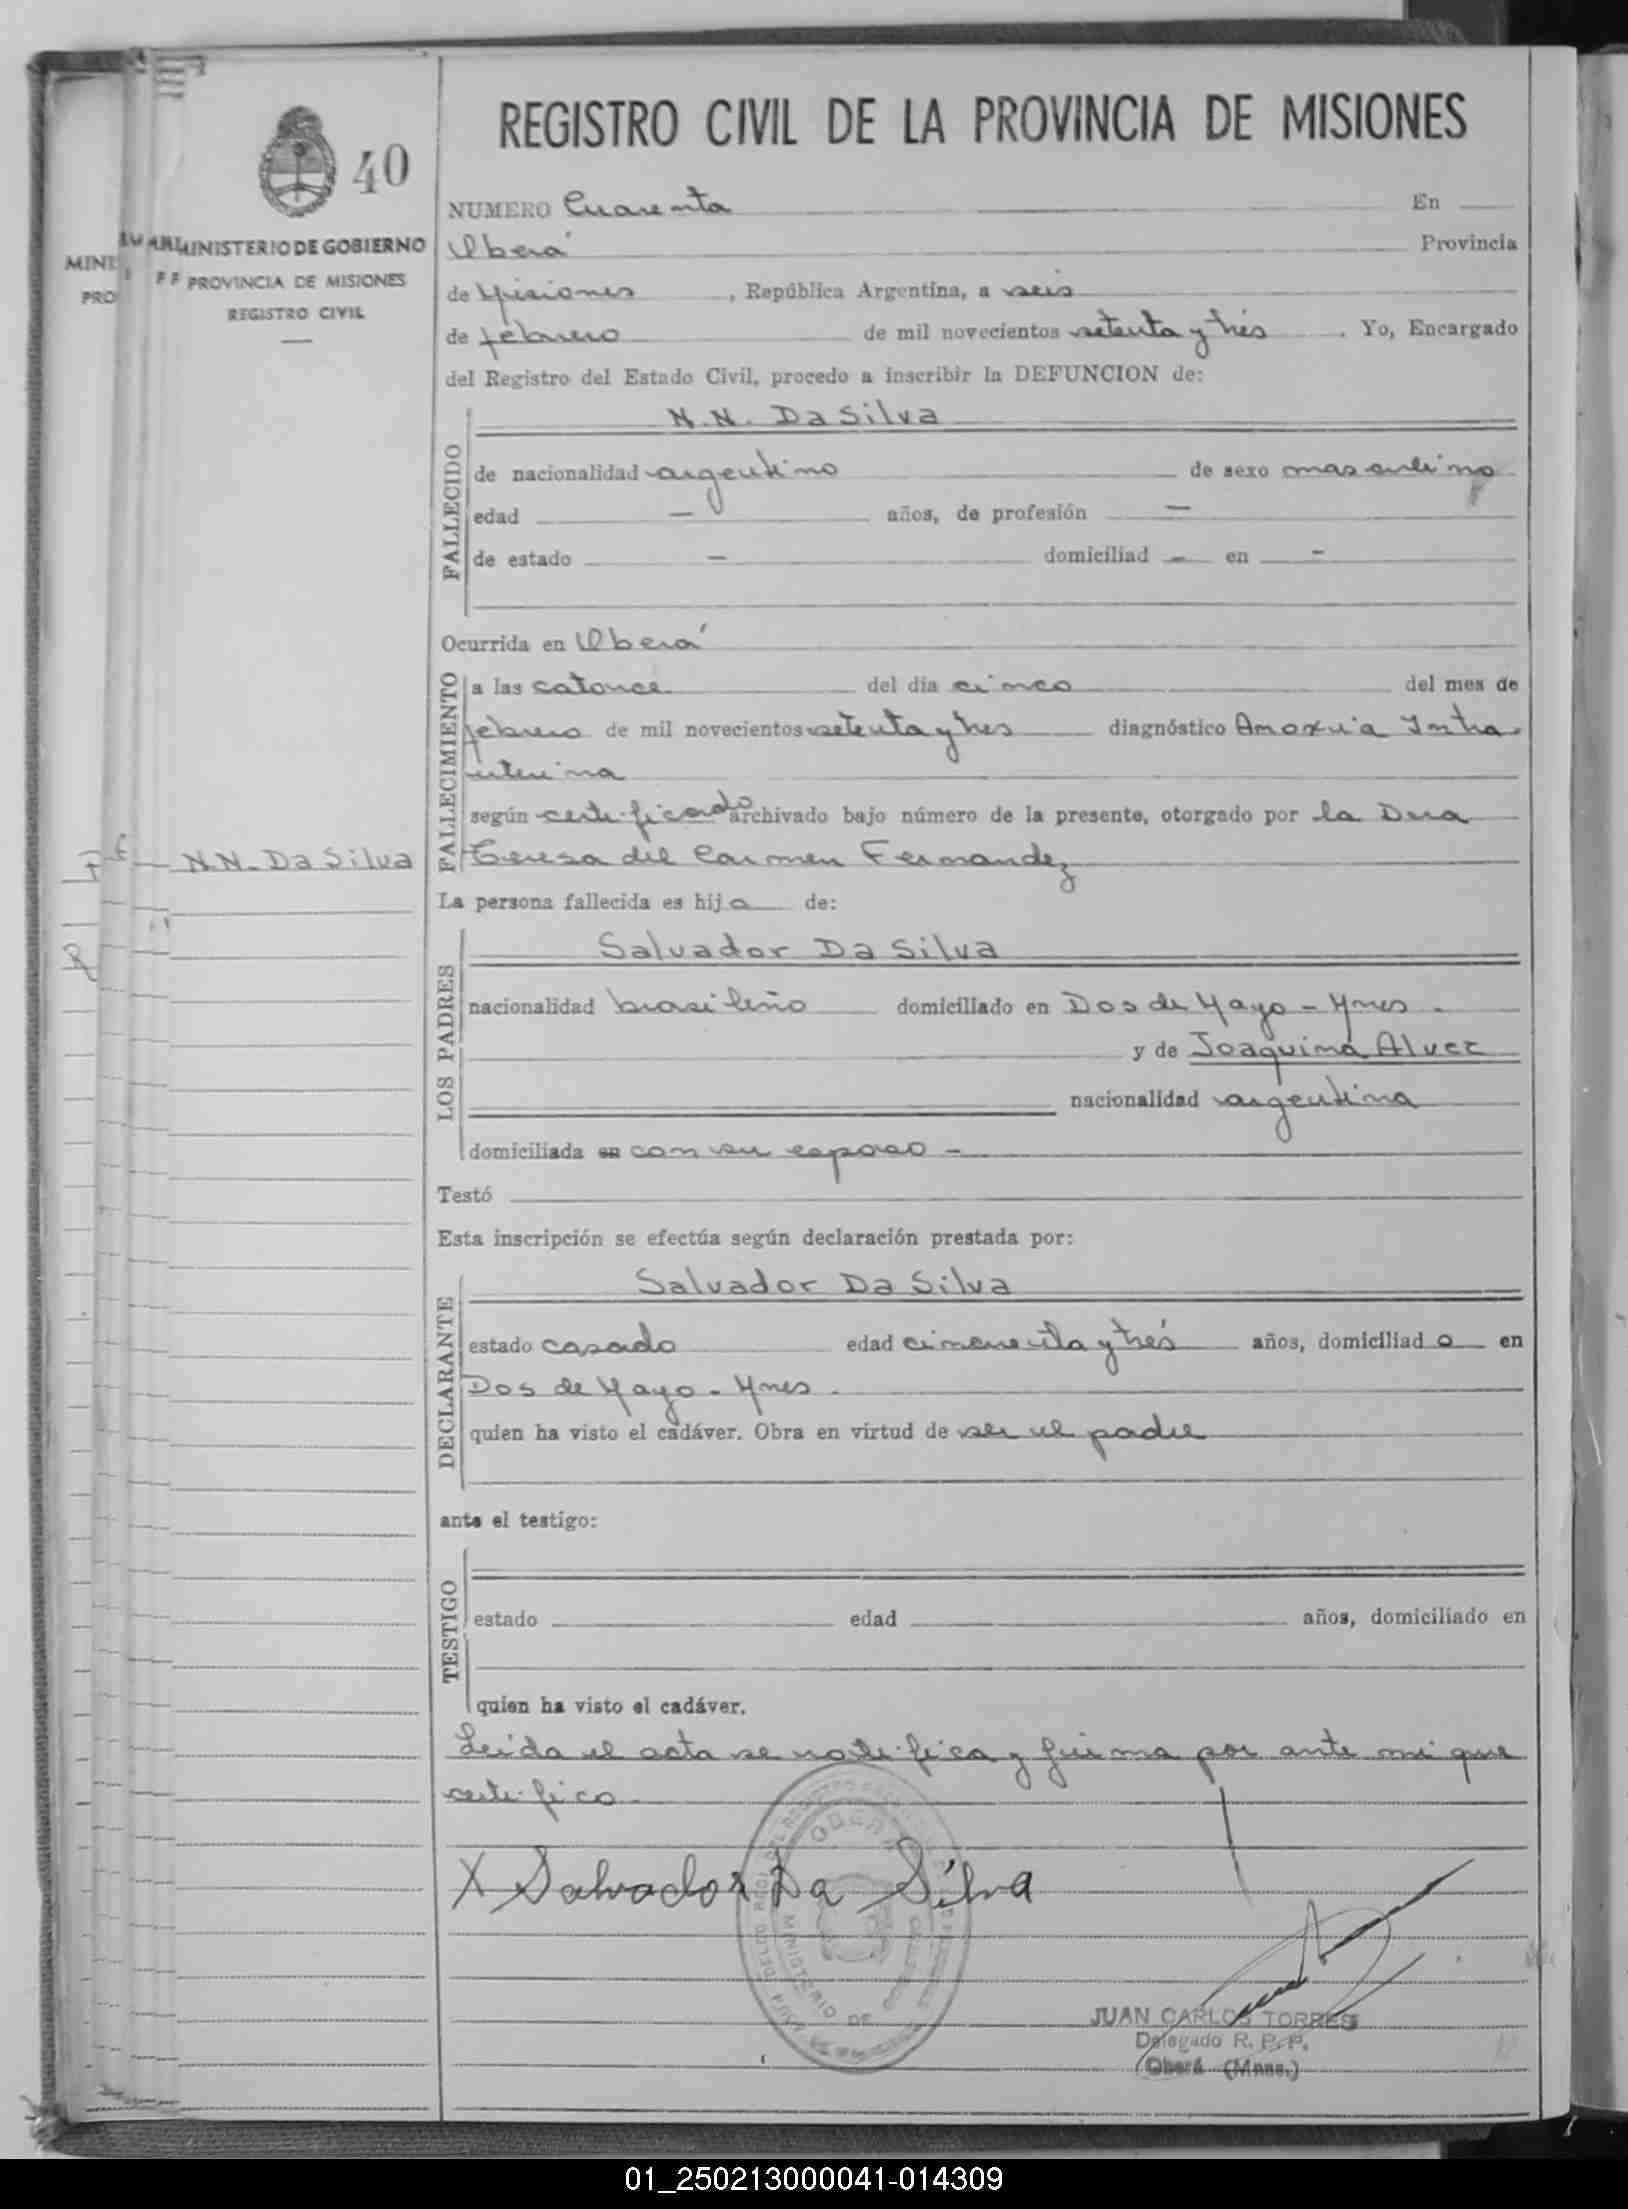 REGISTRO CIVIL DE LA PROVINCIA DE MISIONES
40
MINISTERIO DE GOBIERNO
PROVINCIA DE MISIONES
REGISTRO CIVIL
NUMERO Cuarenta En
Oberá Provincia
de Misiones, República Argentina, a seis
de febrero de mil novecientos setenta y trés. Yo, Encargado
del Registro del Estado Civil, procedo a inscribir la DEFUNCION de:
N.N. Da Silva
FALLECIDO
de nacionalidad argentino de sexo masculino
edad — años, de profesión —
de estado — domiciliad — en —
Ocurrida en Oberá
FALLECIMIENTO
a las catorce del día cinco del mes de
febrero de mil novecientos setenta y tres diagnóstico Anoxia Intra
uterina
según certificado archivado bajo número de la presente, otorgado por la Dra
Teresa del Carmen Fernandez
N.N. Da Silva
La persona fallecida es hijo de:
LOS PADRES
Salvador Da Silva
nacionalidad brasileño domiciliado en Dos de Mayo - Mnes.
y de Joaquina Alvez
nacionalidad argentina
domiciliada en con su esposo -
Testó
Esta inscripción se efectúa según declaración prestada por:
DECLARANTE
Salvador Da Silva
estado casado edad cincuenta y trés años, domiciliado en
Dos de Mayo - Mnes.
quien ha visto el cadáver. Obra en virtud de ser el padre
ante el testigo:
TESTIGO
estado edad años, domiciliado en
quien ha visto el cadáver.
Leida el acta se notifica y firma por ante mi que
certifico.
X Salvador Da Silva
OBERA
MINISTERIO DE
JUAN CARLOS TORRES
Delegado R. P. P.
Oberá (Mnes.)
01_250213000041-014309